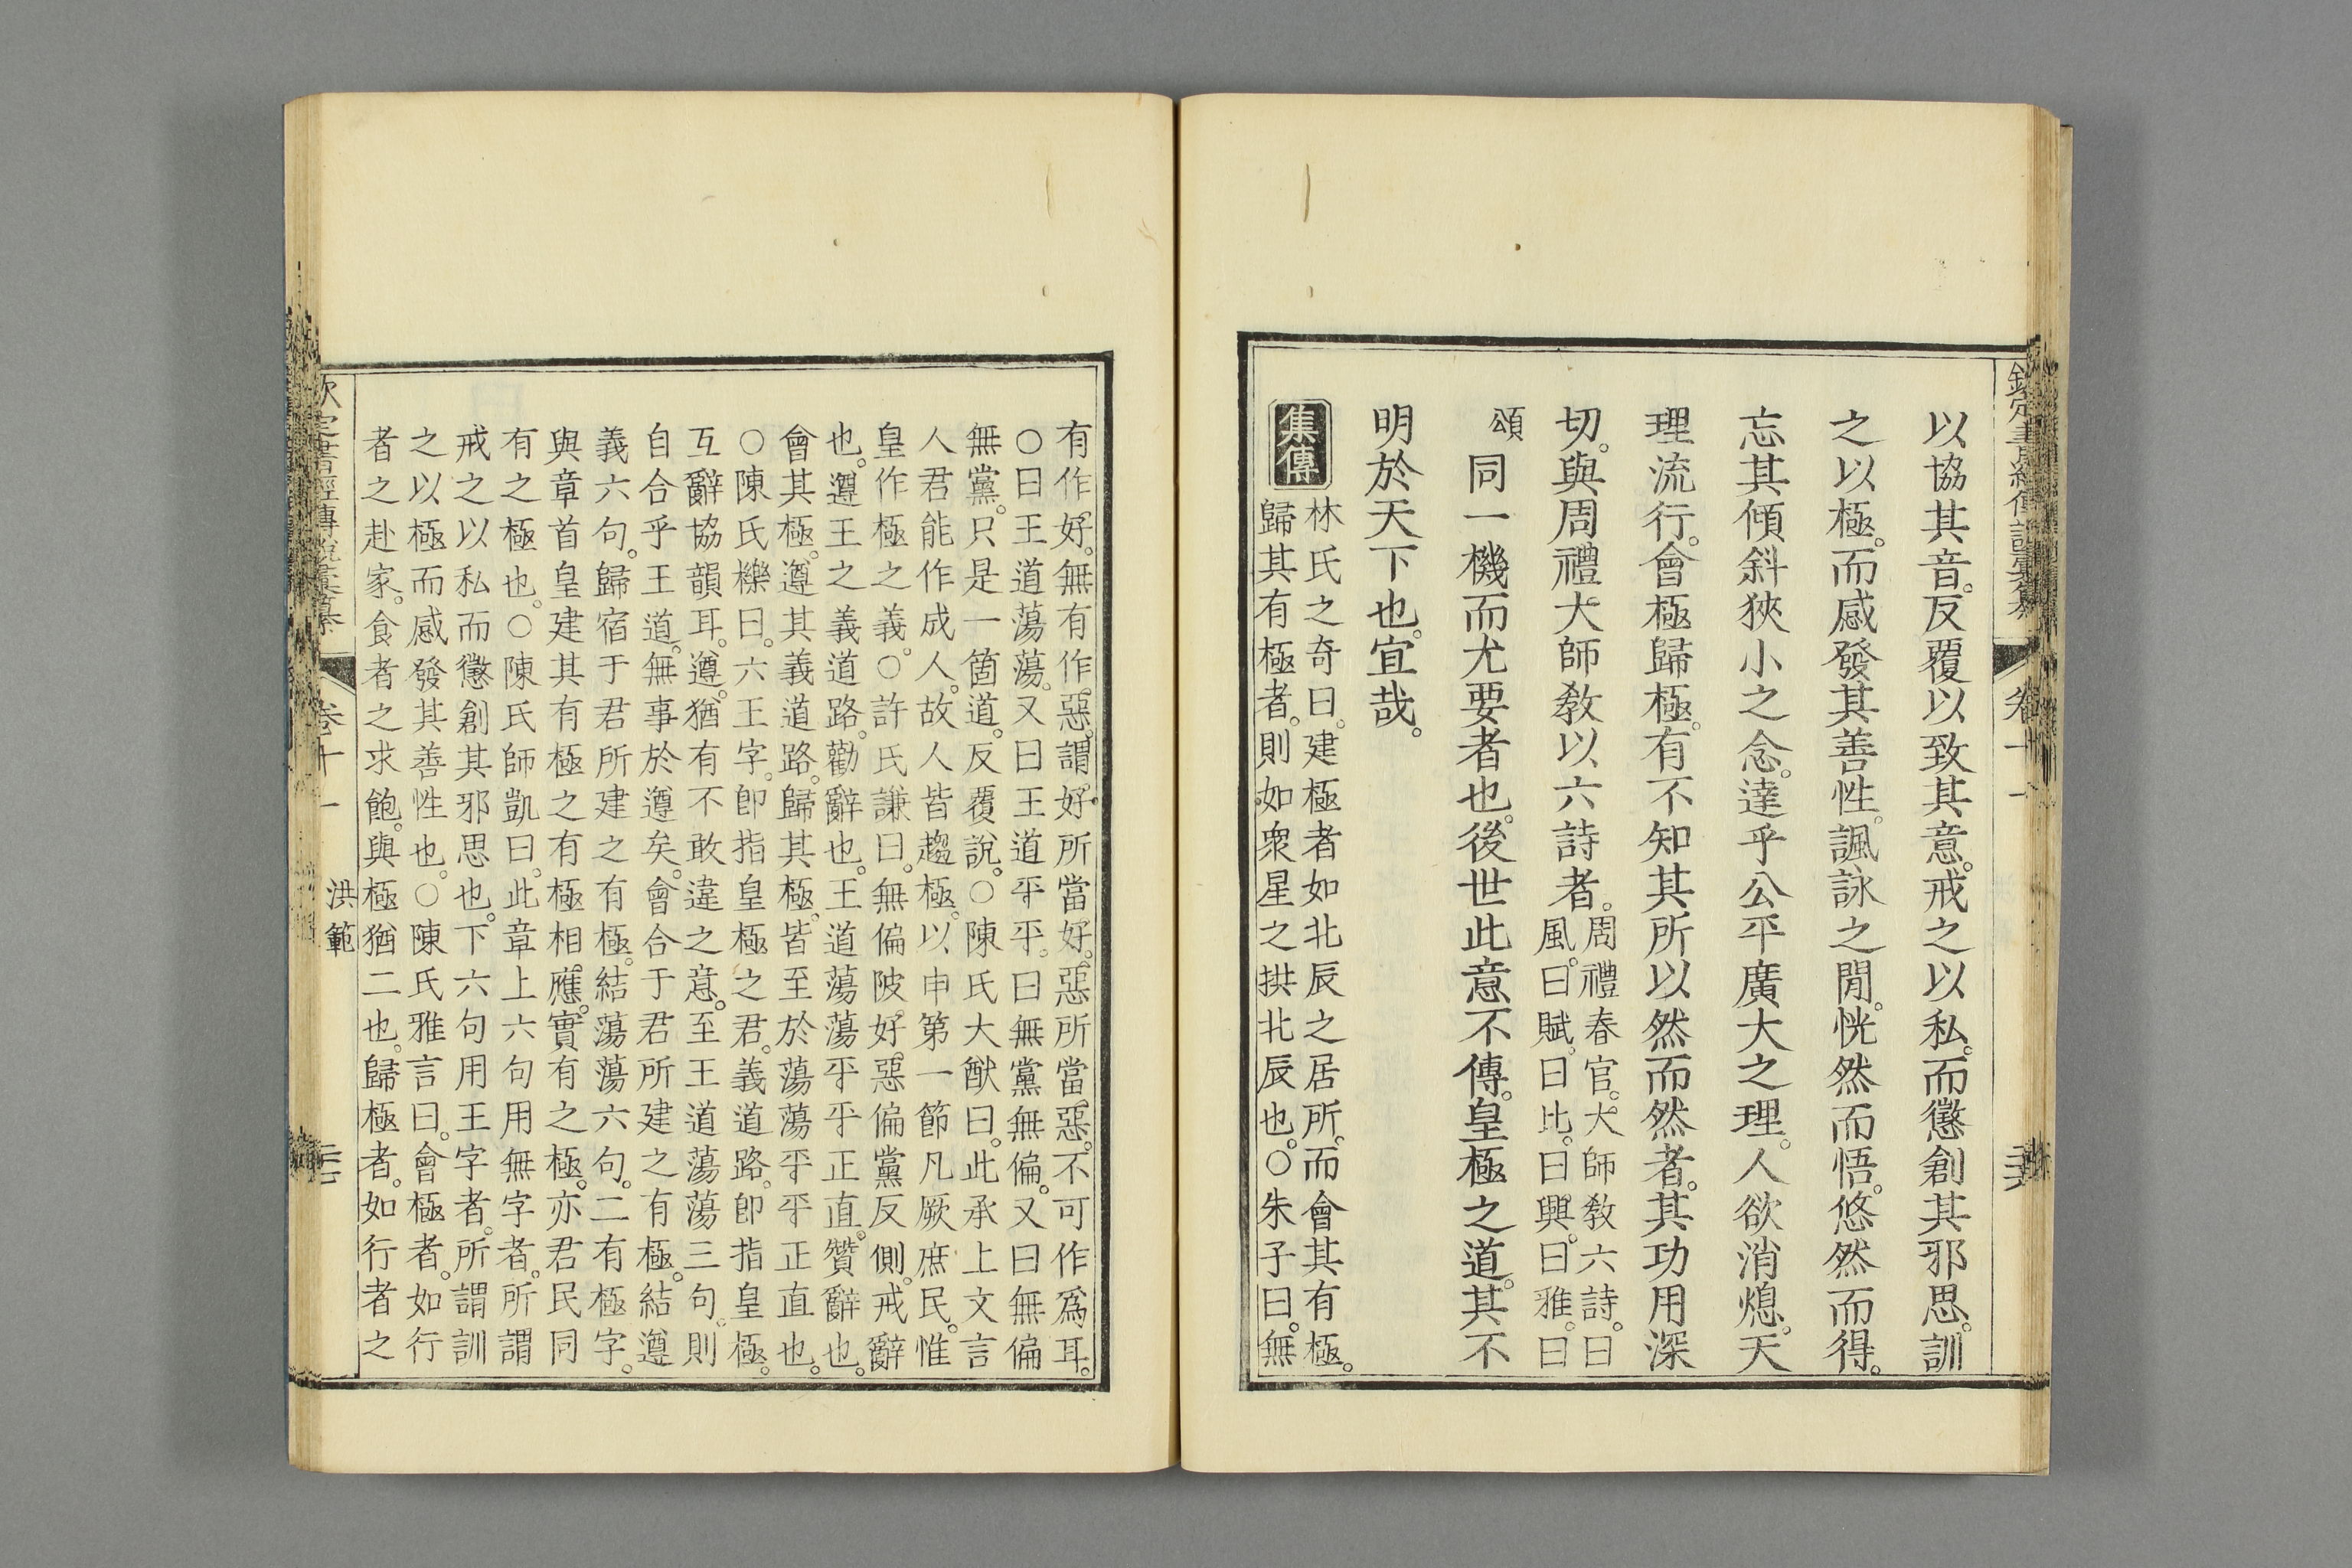 以協其音。反覆以致其意。戒之以私。而懲創其邪思。訓
之以極。而感發其善性。諷詠之閒。恍然而悟。悠然而得。
忘其傾斜狹小之念。達乎公平廣大之理。人欲消熄。天
理流行。會極歸極。有不知其所以然而然者。其功用深
切。與周禮大師教以六詩者。周禮春官。大師教六詩。曰
風。曰賦。曰比。曰興。曰雅。曰
頌同一機而尤要者也。後世此意不傳。皇極之道。其不
明於天下也。宜哉。
集傳
林氏之奇曰。建極者如北辰之居所。而會其有極。
歸其有極者。則如衆星之拱北辰也。○朱子曰。無
有作好。無有作惡。謂好所當好。惡所當惡。不可作爲耳。
○曰王道蕩蕩。又曰王道平平。曰無黨無偏。又曰無偏
無黨。只是一箇道。反覆說。○陳氏大猷曰。此承上文言
人君能作成人。故人皆趨極。以申第一節凡厥庶民。惟
皇作極之義。○許氏謙曰。無偏陂。好惡偏黨反側。戒辭
也。遵王之義道路。勸辭也。王道蕩蕩平平正直。贊辭也。
會其極。遵其義道路。歸其極。皆至於蕩蕩平平正直也。
○陳氏櫟曰。六王字。卽指皇極之君。義道路。卽指皇極。
互辭協韻耳。遵。猶有不敢違之意。至王道蕩蕩三句。則
自合乎王道。無事於遵矣。會合于君所建之有極。結遵
義六句。歸宿于君所建之有極。結蕩蕩六句。二有極字。
與章首皇建其有極之有極相應。實有之極。亦君民同
有之極也。○陳氏師凱曰。此章上六句用無字者。所謂
戒之以私而懲創其邪思也。下六句用王字者。所謂訓
之以極而感發其善性也。○陳氏雅言曰。會極者。如行
者之赴家。食者之求飽。與極猶二也。歸極者。如行者之
欽定書經傳說彙纂
卷十一
洪範